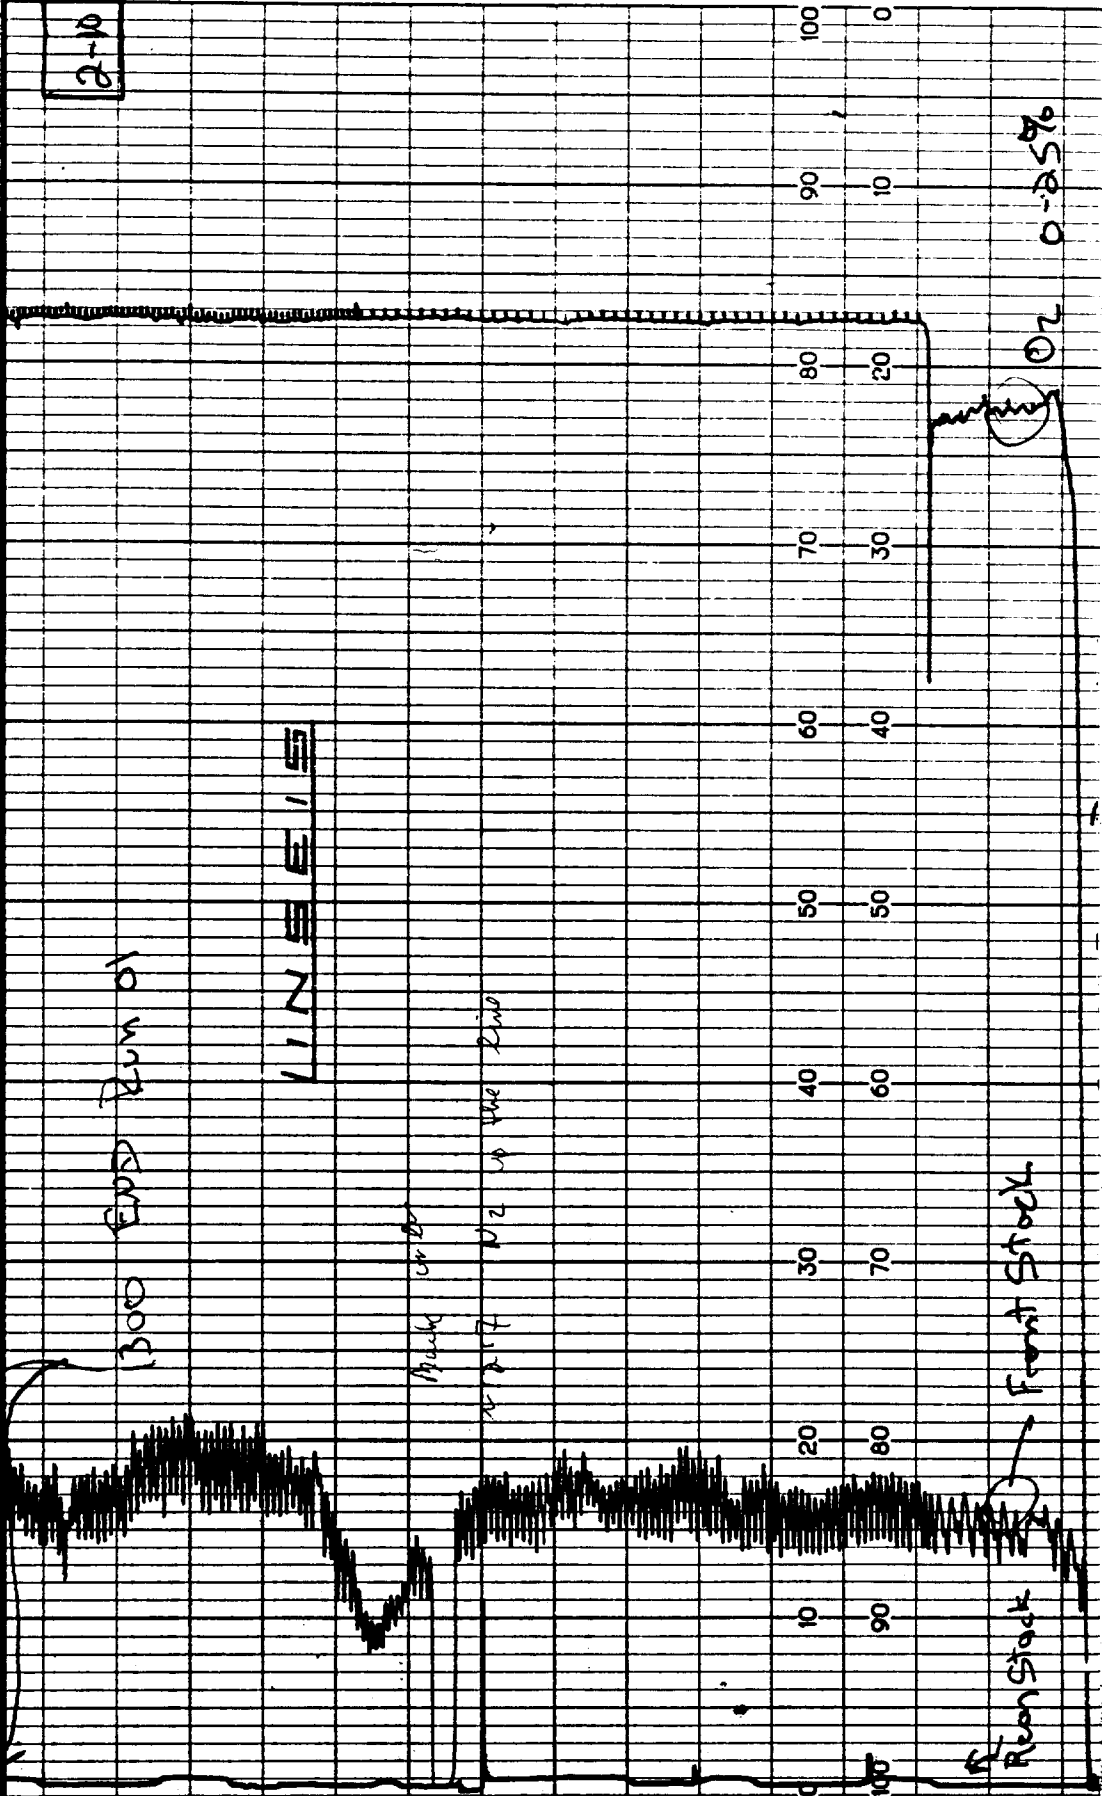 2-10
1300 END Run 01
LINSEIS
N2 up the line
100 90 80 70 60 50 40 30 20 10 0
0 10 20 30 40 50 60 70 80 90 100
O2 0-25%
Rear Stack
Front Stack